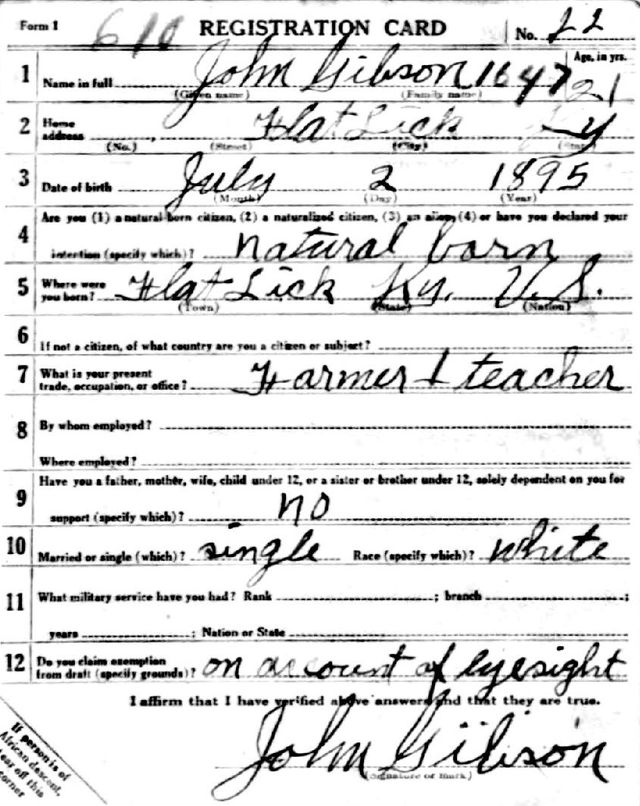 Form 1 610 REGISTRATION CARD No. 22
1 Name in full John Gibson 1647 Age, in yrs. 21
(Given name) (Family name)
2 Home address Flat Lick Ky
(No.) (Street) (City) (State)
3 Date of birth July 2 1895
(Month) (Day) (Year)
4 Are you (1) a natural-born citizen, (2) a naturalized citizen, (3) an alien, (4) or have you declared your
intention (specify which)? natural born
5 Where were you born? Flat Lick Ky. U.S.
(Town) (State) (Nation)
6 If not a citizen, of what country are you a citizen or subject?
7 What is your present trade, occupation, or office? Farmer & teacher
8 By whom employed?
Where employed?
9 Have you a father, mother, wife, child under 12, or a sister or brother under 12, solely dependent on you for
support (specify which)? no
10 Married or single (which)? single Race (specify which)? white
11 What military service have you had? Rank ; branch ;
years ; Nation or State
12 Do you claim exemption from draft (specify grounds)? on account of eyesight
I affirm that I have verified above answers and that they are true.
John Gibson
(Signature or mark)
If person is of
African descent,
tear off this
corner